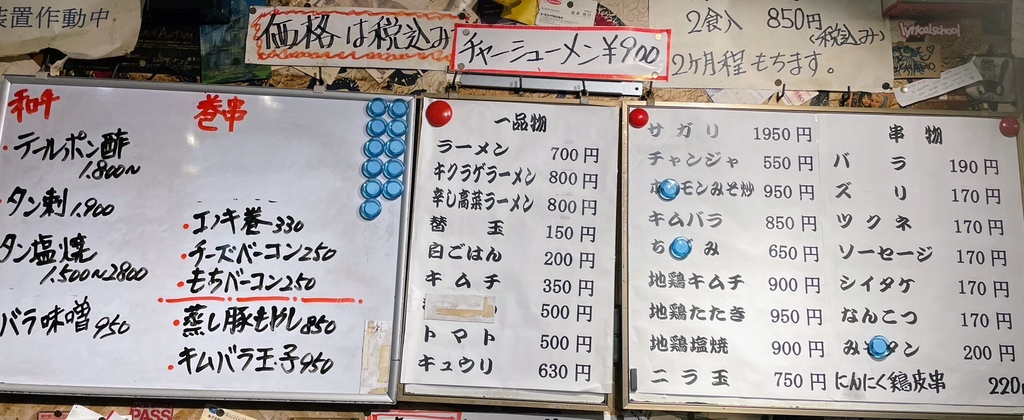 装置作動中
価格は税込み
チャーシューメン¥900
2食入 850円
(税込み)
2ヶ月程もちます。
lyrical school
和牛
テールポン酢
1.800~
タン刺 1.900
タン塩焼
1.500~2800
バラ味噌 950
巻串
エノキ巻-330
チーズベーコン250
もちベーコン250
蒸し豚もやし850
キムバラ玉子950
一品物
ラーメン 700円
キクラゲラーメン 800円
辛し高菜ラーメン 800円
替玉 150円
白ごはん 200円
キムチ 350円
500円
トマト 500円
キュウリ 630円
サガリ 1950円
チャンジャ 550円
ホ モンみそ炒 950円
キムバラ 850円
ち み 650円
地鶏キムチ 900円
地鶏たたき 950円
地鶏塩焼 900円
ニラ玉 750円
串物
バラ 190円
ズリ 170円
ツクネ 170円
ソーセージ 170円
シイタケ 170円
なんこつ 170円
み タン 200円
にんにく鶏皮串 220
PASS